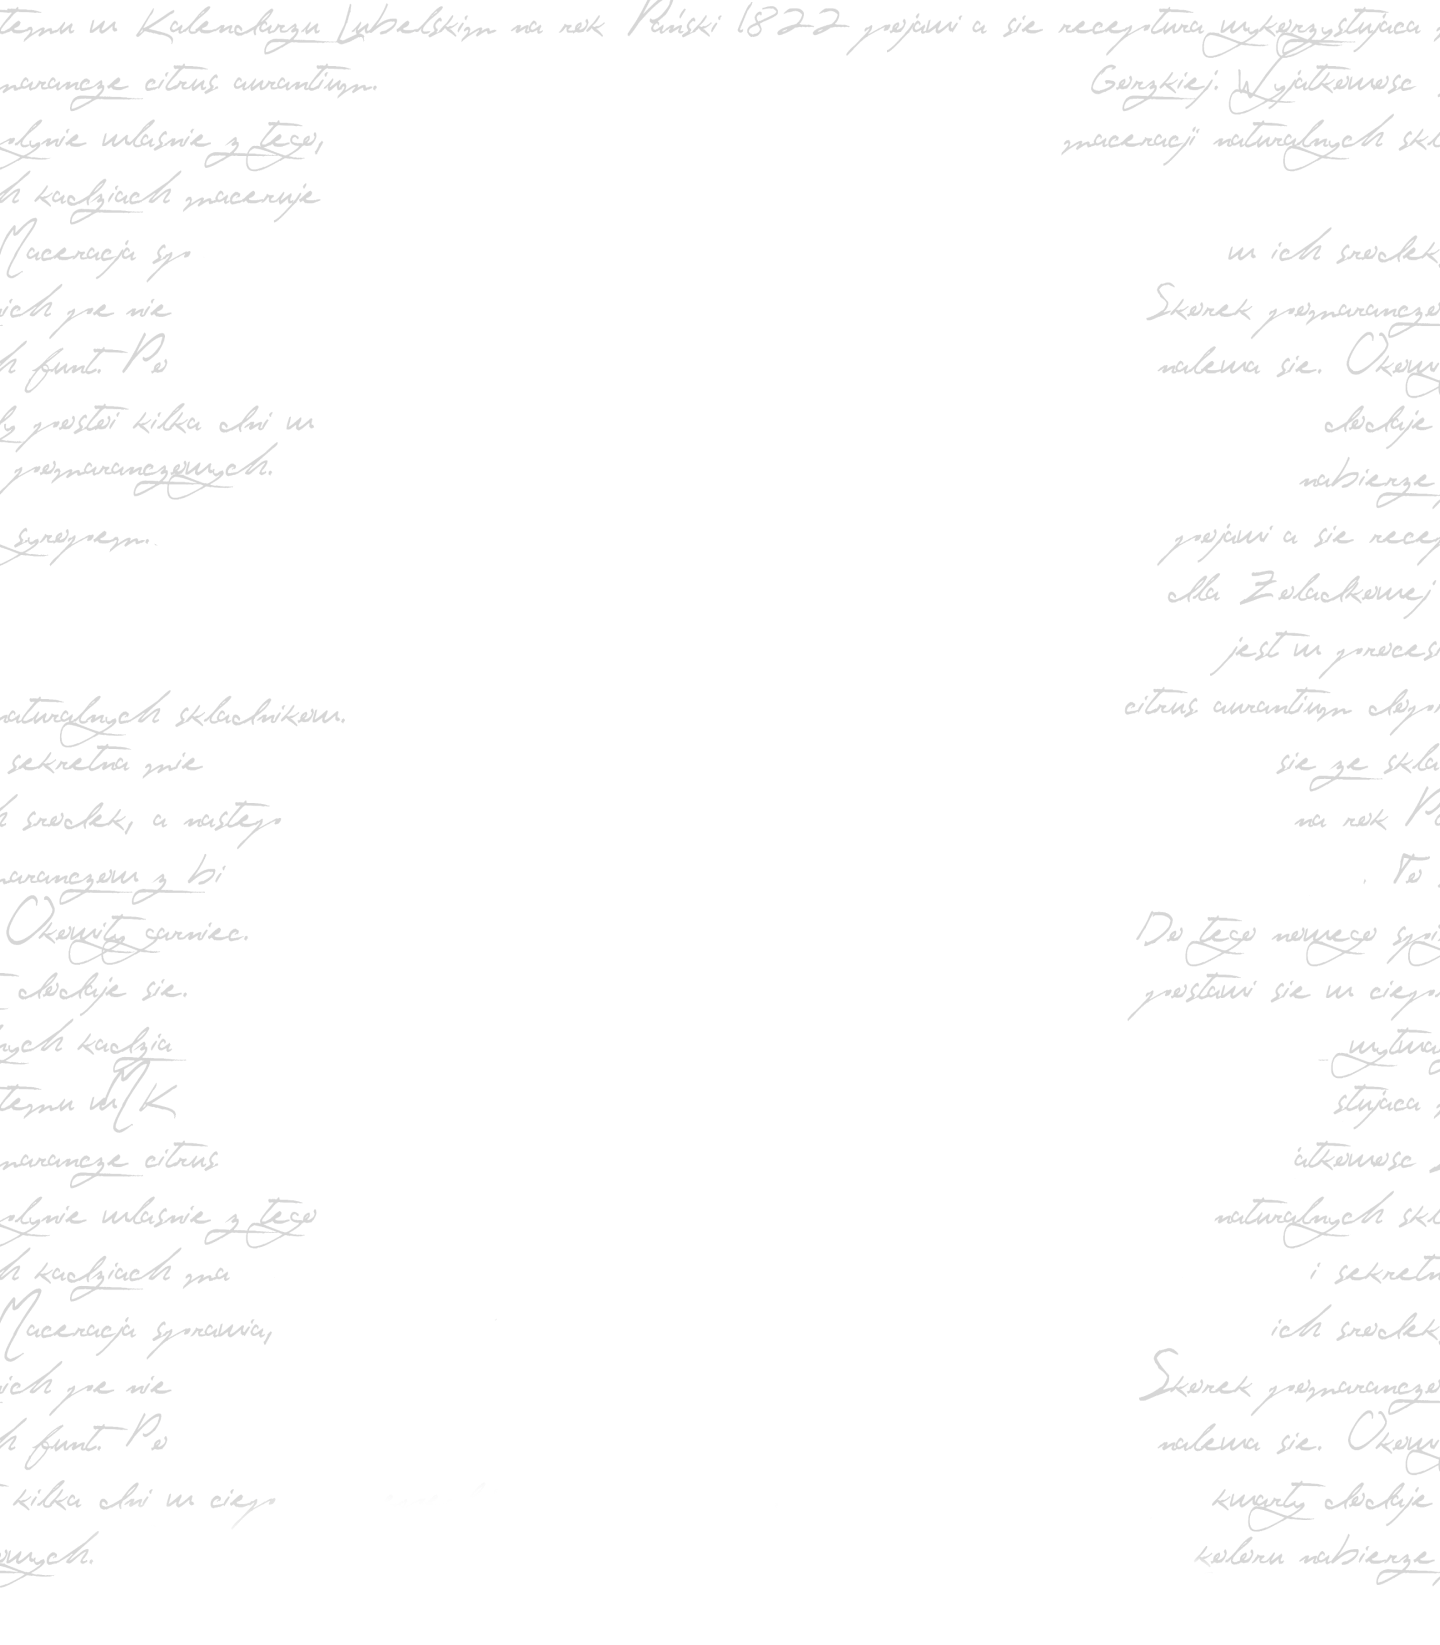 temu w Kalendarzu Lubelskim na rok Pański 1822 pojawi a sie receptura wykorzystujaca
marancze citrus aurantium. Gorzkiej. Wyjatkowosc
plynie wlasnie z tego, maceracji naturalnych skl
h kadziach maceruje
Maceracja sp w ich srodek,
ich po nie Skorek pomaranczo
h funt. Po nalewa sie. Okowi
ly postoi kilka dni w dodaje
pomaranczowych. nabierze
syropem. pojawi a sie recep
dla Zoladkowej
jest w proces
naturalnych skladnikow. citrus aurantium dop
sekretna mie sie ze skla
h srodek, a nastep na rok Pa
maranczow z bi . To
Okowity garniec. Do tego nowego spi
dodaje sie. postawi sie w ciep
nych kadzia wytwa
temu w M K stujaca
marancze citrus atkowosc
plynie wlasnie z tego naturalnych skl
h kadziach ma i sekretn
Maceracja sprawia, ich srodek
ich po nie Skorek pomaranczo
h funt. Po nalewa sie. Okowi
kilka dni w ciep kwarty dodaje
owych. koloru nabierze